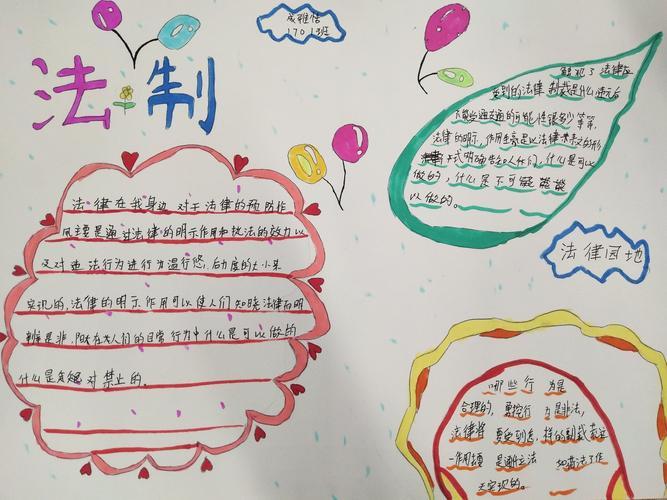 法制
成雅恬
1701班
法律在我身边 对于法律的预防作
用主要是通过法律的明示作用和执法的效力以
及对违法行为进行为温行惩,后力度的大小来
实现的,法律的明示作用可以使人们知晓法律而明
辨是非,既在人们的日常行为中什么是可以做的
什么是 对禁上的。
触犯了法律应
受到的法律制裁是什么违元后
法律的明示,作用主亮是以法律 的形
式明确告知人任们,什么是可以
做的,什么是不可
以做的。
法律园地
哪些行为是
合理的, 行为是非法,
法律将 要受到怎,样的制裁
一作用 是通过立法 如普法工作
天实现的。